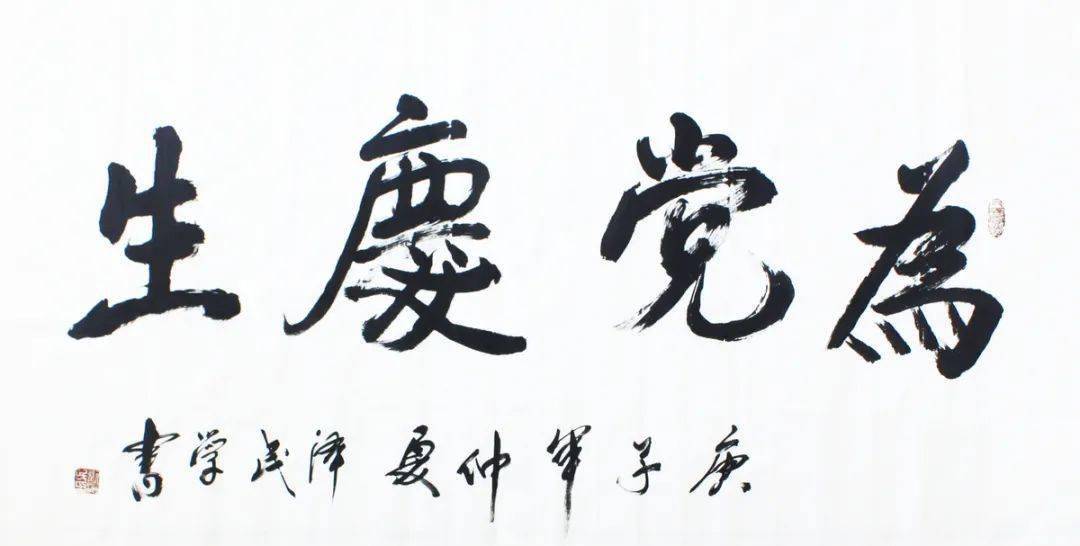 為党慶生
庚子年仲夏泽民学書